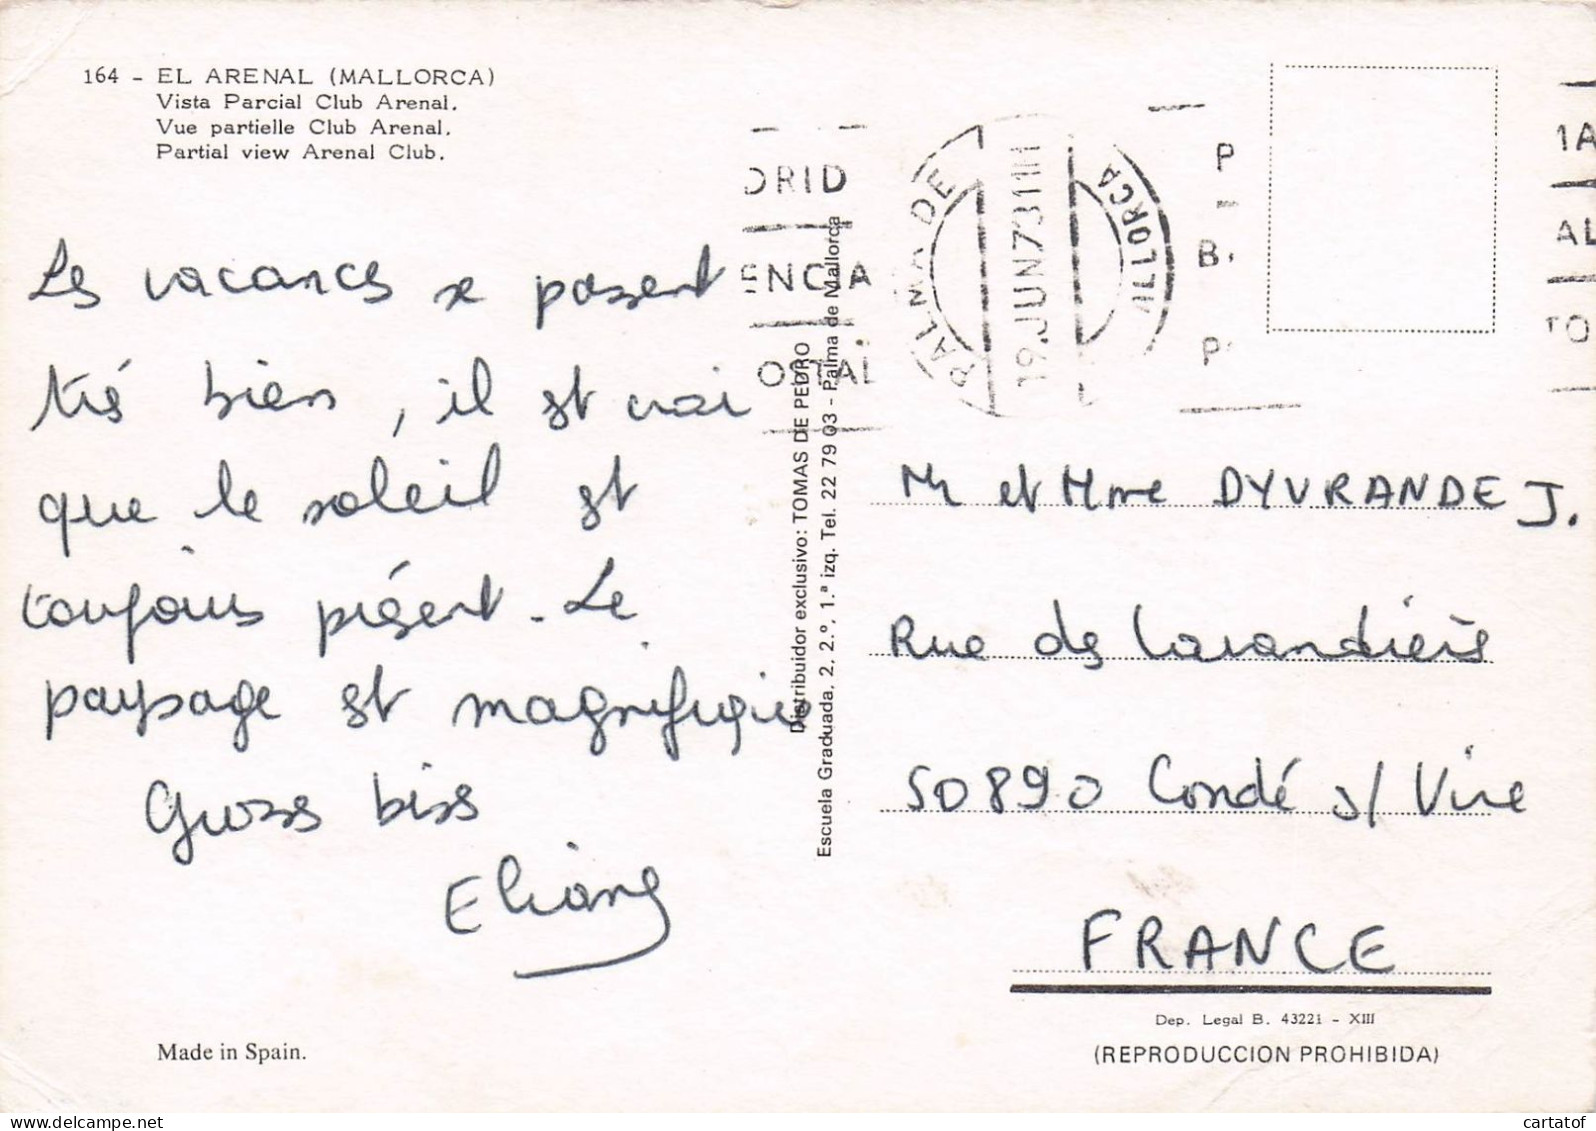 164 - EL ARENAL (MALLORCA)
Vista Parcial Club Arenal.
Vue partielle Club Arenal.
Partial view Arenal Club.
Les vacances se passent
très bien, il est vrai
que le soleil est
toujours présent. Le
paysage est magnifique
Gross biss
Eliane
Made in Spain.
Distribuidor exclusivo: TOMAS DE PEDRO
Escuela Graduada, 2, 2.º, 1.ª izq. Tel. 22 79 03 - Palma de Mallorca
DRID
ENCIA
OSTAL
PALMA DE
19.JUN73 11H
MALLORCA
P
B.
P
1A
AL
TO
Mr et Mme DYVRANDE J.
Rue des Lavandières
50890 Condé s/ Vire
FRANCE
Dep. Legal B. 43221 - XIII
(REPRODUCCION PROHIBIDA)
cartatof